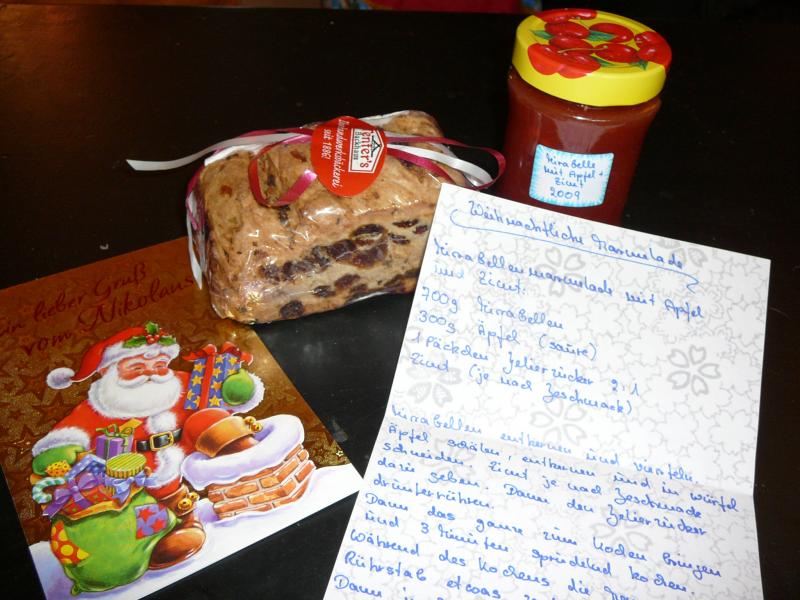 enter's
Backhaus
Versandwerksbäckerei
seit 1896!
Mirabelle
mit Apfel +
Zimt
2009
Ein lieber Gruß
vom Nikolaus
Weihnachtliche Marmelade
Mirabellenmarmelade mit Apfel
und Zimt.
700g Mirabellen
300g Äpfel (saure)
1 Päckchen Gelierzucker 2:1
Zimt (je nach Geschmack)
Mirabellen entkernen und vierteln.
Äpfel schälen, entkernen und in Würfel
schneiden. Zimt je nach Geschmack
dazu geben. Dann den Gelierzucker
drunterrühren.
Dann das ganze zum Kochen bringen
und 3 Minuten sprudelnd kochen.
Während des Kochens die
Rührstab etwas
Dann